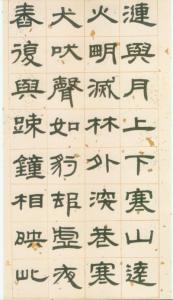 漣與月上下寒山遠
火明滅林外深巷寒
犬吠聲如豹邨虛夜
舂復與踈鐘相映此